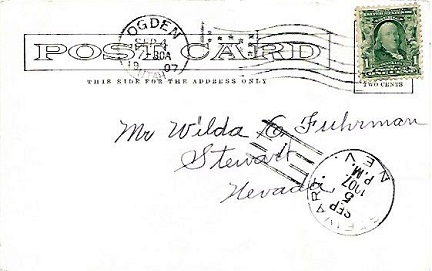 OGDEN
SEP 4
7-30A
1907
UTAH
POST CARD
THIS SIDE FOR THE ADDRESS ONLY
1
TWO CENTS
Mr Wilda O Fuhrman
Stewart
Nevada
STEWART. NEV.
SEP
5
1907
P.M.